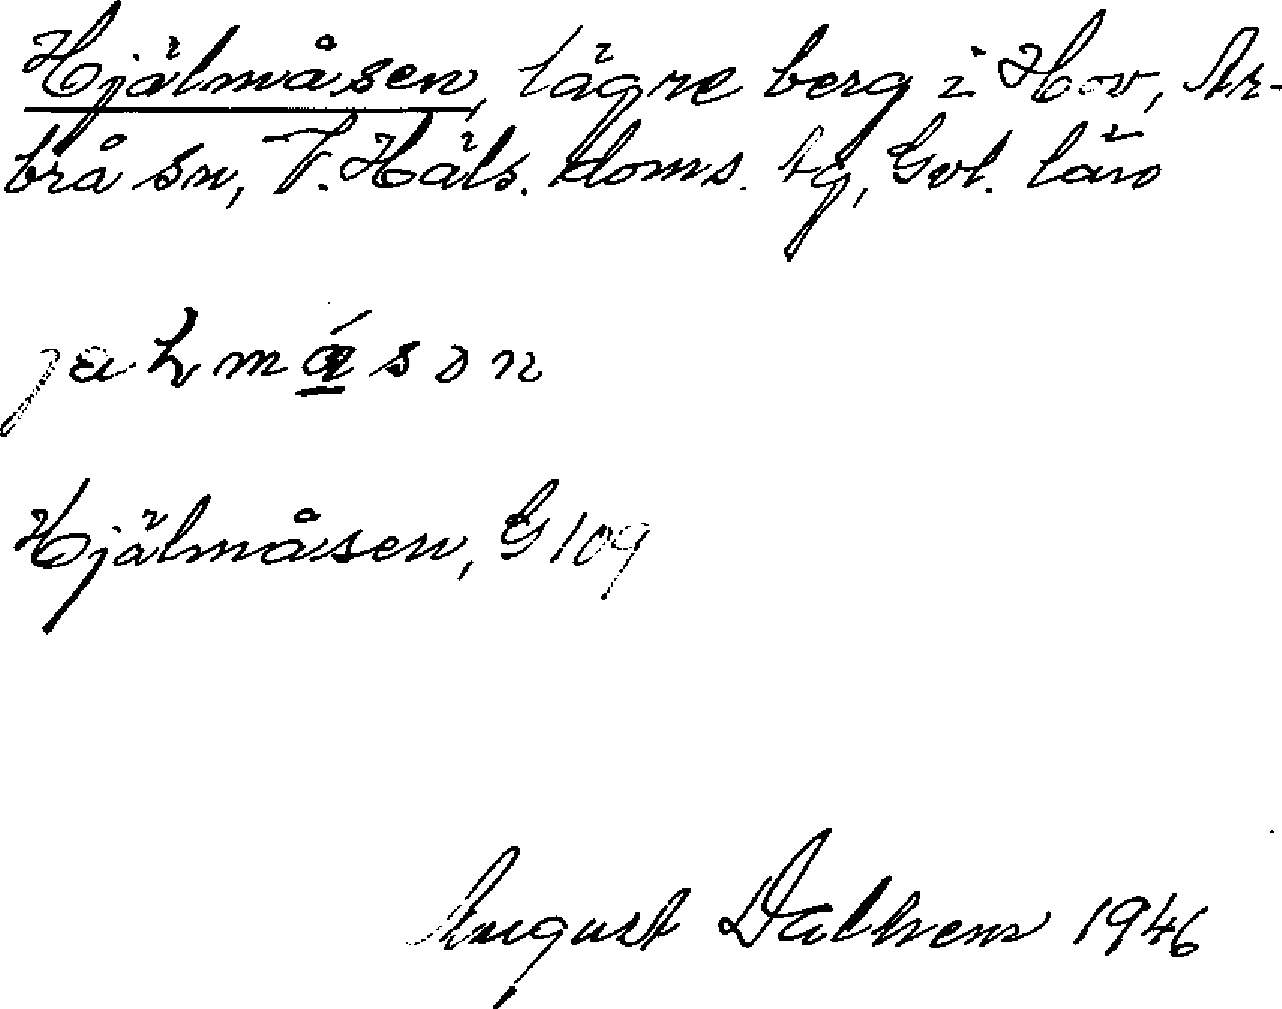 Hjälmåsen, lägre berg i Hov, Ar-
brå sn, V. Häls. doms. tg, Gvl. län
Hjälmåsen, G 109
August Dalhem 1946